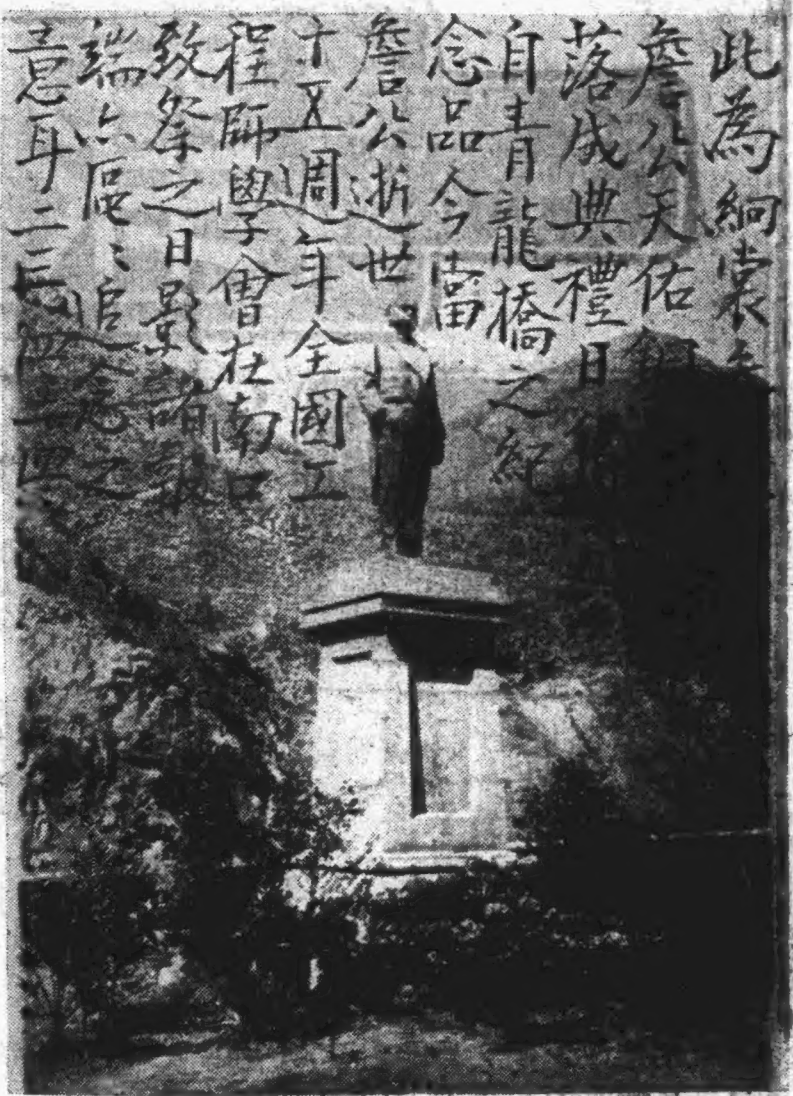 此為絅裳
詹公天佑銅
落成典禮日
自青龍橋之紀
念品今當
詹公逝世
十五週年全國工
程師學會在南口
致祭之日影諸報
端亦區々追念之
意耳二三四二四